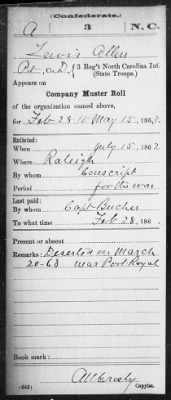 (Confederate.)
A 3 N.C.
Lewis Allen
Pvt, Co. D, 3 Reg't North Carolina Inf.
(State Troops.)
Appears on
Company Muster Roll
of the organization named above,
for Feb 28 to May 15, 1863.
Enlisted:
When July 15, 1862
Where Raleigh
By whom Conscript
Period for the war
Last paid:
By whom Capt Bucher
To what time Feb 28, 186 .
Present or absent
Remarks: Deserted on March
20-63 near Port Royal
Book mark:
(642)
Copyist.